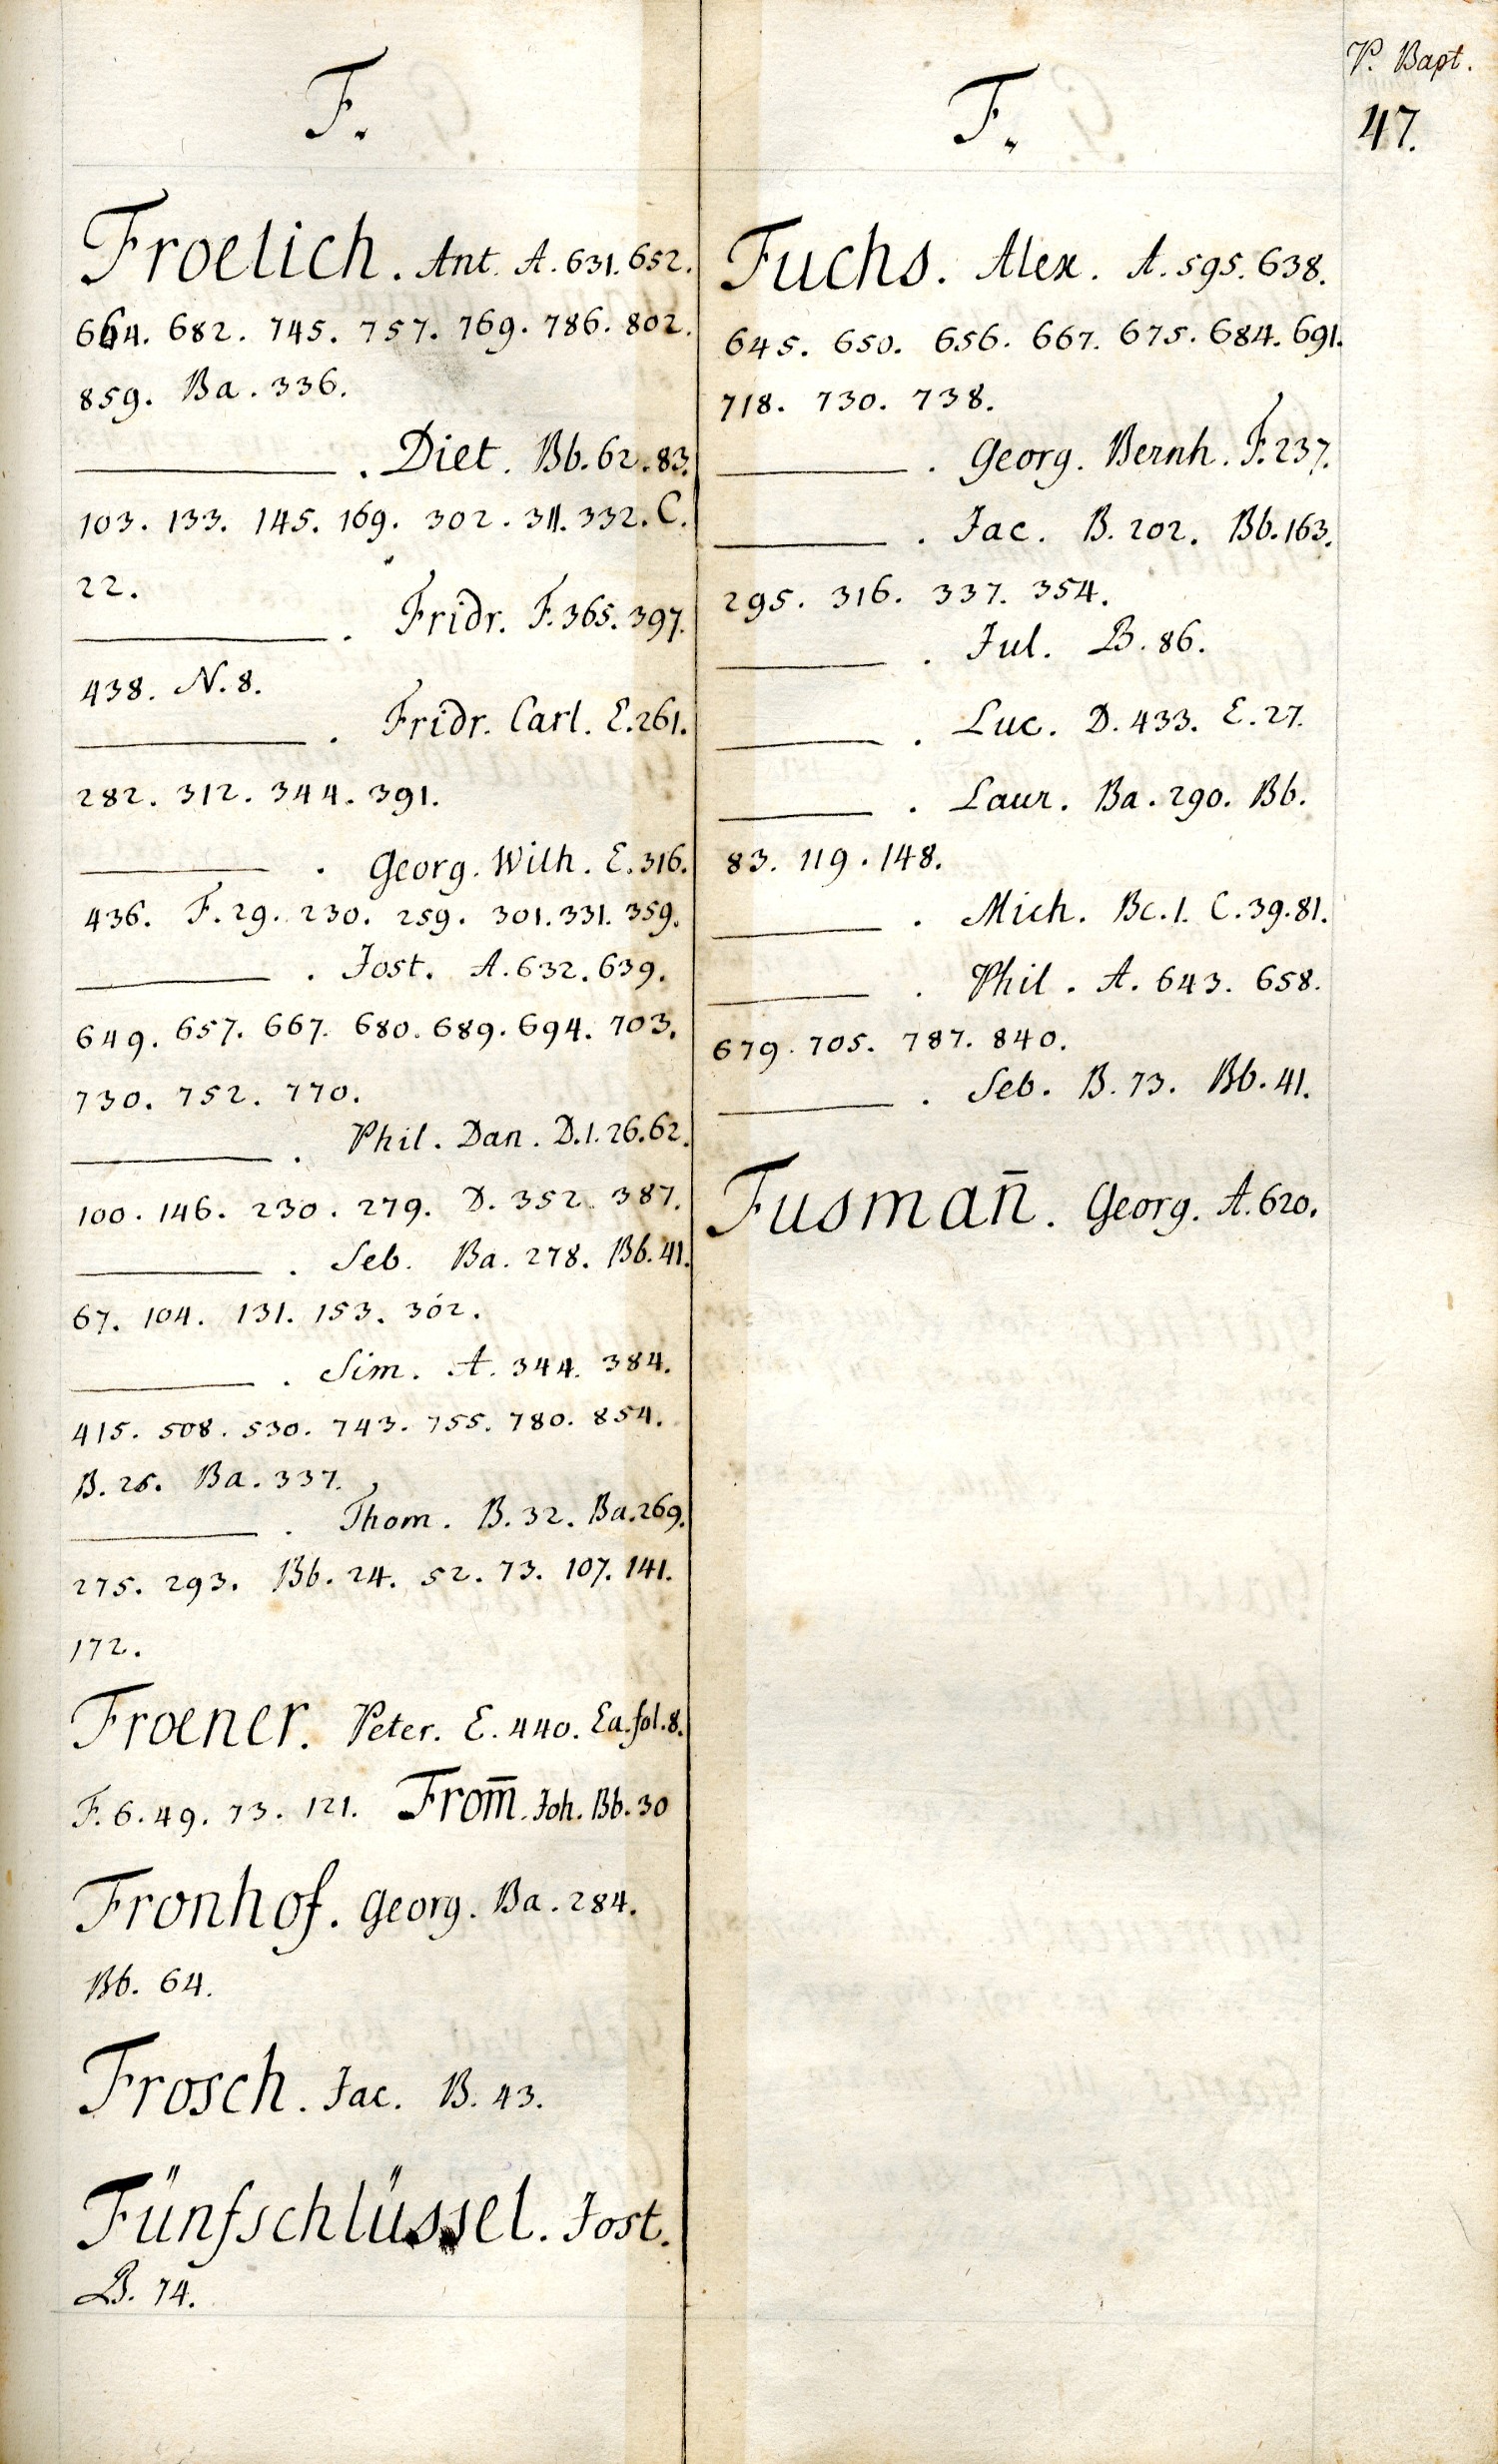 P. Bapt.
47.
F.
Froelich. Ant. A. 631. 652.
664. 682. 745. 757. 769. 786. 802.
859. Ba. 336.
———. Diet. Bb. 62. 83.
103. 133. 145. 169. 302. 311. 332. C.
22.
———. Fridr. F. 365. 397.
438. N. 8.
———. Fridr. Carl. E. 261.
282. 312. 344. 391.
———. Georg. Wilh. E. 316.
436. F. 29. 230. 259. 301. 331. 359.
———. Jost. A. 632. 639.
649. 657. 667. 680. 689. 694. 703.
730. 752. 770.
———. Phil. Dan. D. 1. 26. 62.
100. 146. 230. 279. D. 352. 387.
———. Seb. Ba. 278. Bb. 41.
67. 104. 131. 153. 302.
———. Sim. A. 344. 384.
415. 508. 530. 743. 755. 780. 854.
B. 26. Ba. 337.
———. Thom. B. 32. Ba. 269.
275. 293. Bb. 24. 52. 73. 107. 141.
172.
Froener. Peter. E. 440. Ea. fol. 8.
F. 6. 49. 73. 121. From̄. Joh. Bb. 30
Fronhof. Georg. Ba. 284.
Bb. 64.
Frosch. Jac. B. 43.
Fünfschlüssel. Jost.
B. 74.
F.
Fuchs. Alex. A. 595. 638.
645. 650. 656. 667. 675. 684. 691.
718. 730. 738.
———. Georg. Bernh. F. 237.
———. Jac. B. 202. Bb. 163.
295. 316. 337. 354.
———. Jul. B. 86.
———. Luc. D. 433. E. 27.
———. Laur. Ba. 290. Bb.
83. 119. 148.
———. Mich. Bc. 1. C. 39. 81.
———. Phil. A. 643. 658.
679. 705. 787. 840.
———. Seb. B. 73. Bb. 41.
Fusman̄. Georg. A. 620.